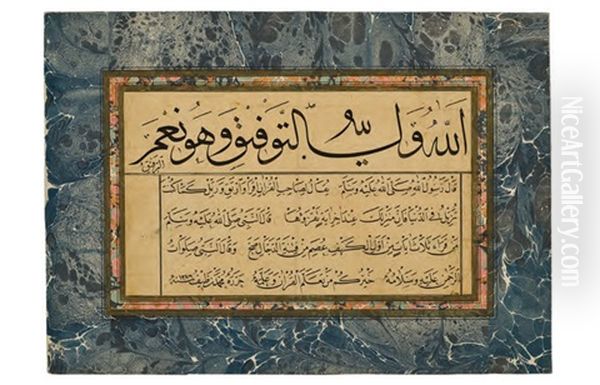 الله ولي التوفيق وهو نعم
الرفيق
قال رسول الله صلى الله عليه وسلم يقال لصاحب القرآن اقرأ وارتق ورتل كما كنت
ترتل في الدنيا فإن منزلك عند آخر آية تقرؤها قال النبي صلى الله عليه وسلم
من قرأ ثلاث آيات من أول الكهف عصم من فتنة الدجال صح وقال النبي صلوات
الرحمن عليه وسلامه خيركم من تعلم القرآن وعلمه حرره محمد نظيف
NiceArtGallery.com